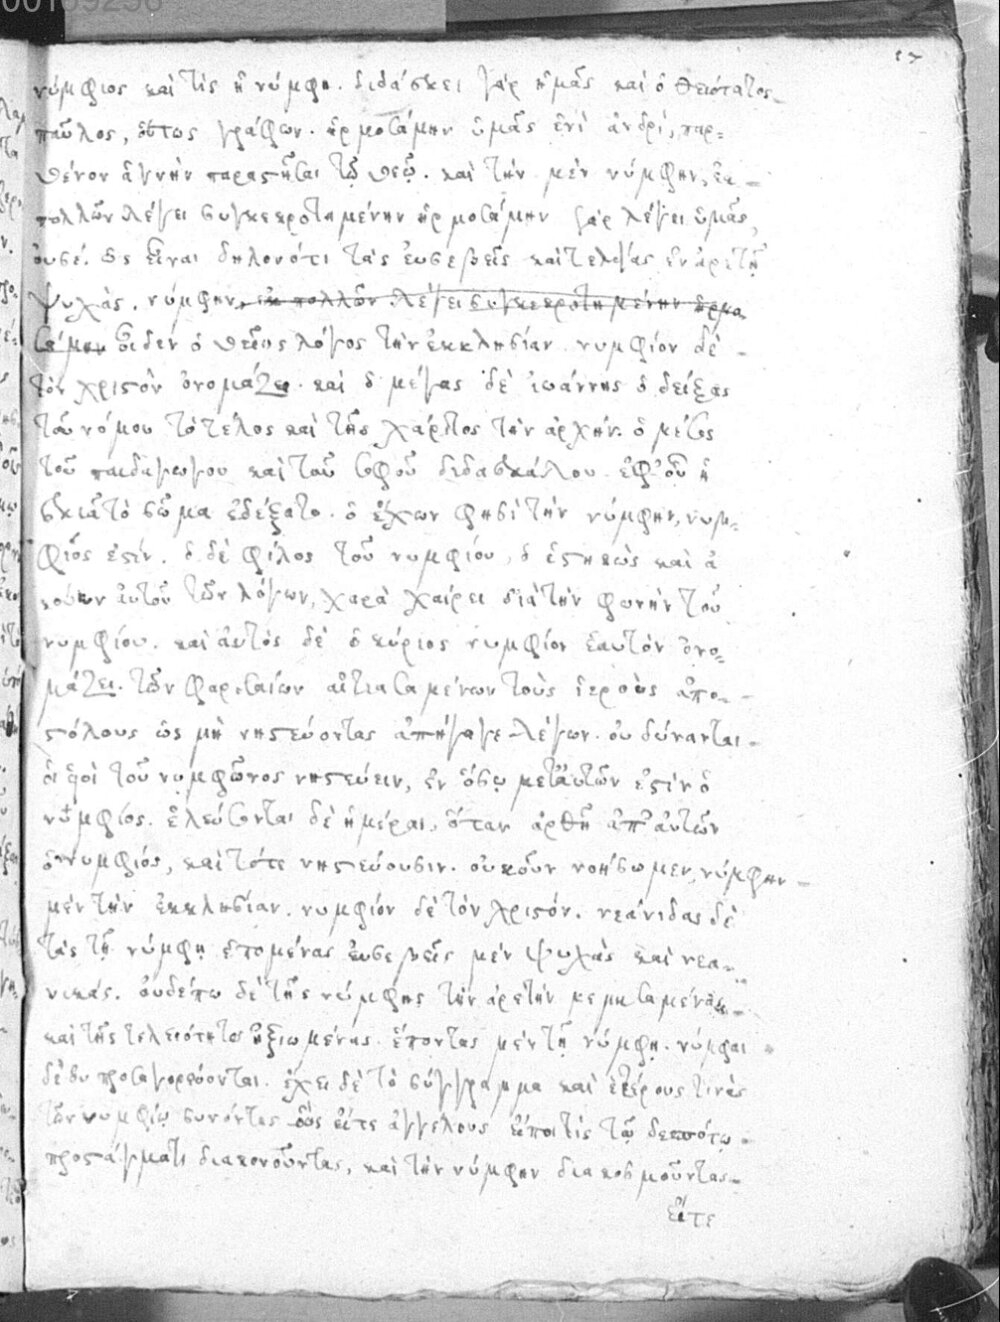 00169296
νύμφιος καὶ τίς ἡ νύμφη. διδάσκει γὰρ ἡμᾶς καὶ ὁ θειότατος
παῦλος, οὕτως γράφων. ἡρμοσάμην ὑμᾶς ἑνὶ ἀνδρὶ, παρ-
θένον ἁγνὴν παραστῆσαι τῷ θεῷ. καὶ τὴν μὲν νύμφην, ἐκ
πολλῶν λέγει συγκεκροτημένην ἡρμοσάμην γὰρ λέγει ὑμᾶς,
οὐσέ. ὡς εἶναι δηλονότι τὰς εὐσεβεῖς καὶ τελείας ἐν ἀρετῇ
ψυχὰς. νύμφην, ἐκ πολλῶν λέγει συγκεκροτημένην ἡρμο
σάμην οἶδεν ὁ θεῖος λόγος τὴν ἐκκλησίαν. νυμφίον δὲ
τὸν χριστὸν ὀνομάζει. καὶ ὁ μέγας δὲ ἰωάννης ὁ δείξας
τοῦ νόμου τὸ τέλος καὶ τῆς χάριτος τὴν ἀρχήν. ὁ μέσος
τοῦ παιδαγωγοῦ καὶ τοῦ σοφοῦ διδασκάλου. ἐφ' οὗ ἡ
σκιὰ τὸ σῶμα ἐδέξατο. ὁ ἔχων φησὶ τὴν νύμφην, νυμ-
φίος ἐστίν. ὁ δὲ φίλος τοῦ νυμφίου, ὁ ἑστηκὼς καὶ ἀ
κούων αὐτοῦ τῶν λόγων, χαρᾶ χαίρει διὰ τὴν φωνὴν τοῦ
νυμφίου. καὶ αὐτὸς δὲ ὁ κύριος νυμφίον ἑαυτὸν ὀνο-
μάζει. τῶν φαρισαίων αἰτιασαμένων τοὺς ἱεροὺς ἀπο-
στόλους ὡς μὴ νηστεύοντας ἀπήγαγε λέγων. οὐ δύνανται
οἱ υἱοὶ τοῦ νυμφῶνος νηστεύειν, ἐν ὅσῳ μετ' αὐτῶν ἐστὶν ὁ
νύμφίος. ἐλεύσονται δὲ ἡμέραι, ὅταν ἀρθῇ ἀπ' αὐτῶν
ὁ νυμφιός, καὶ τότε νηστεύουσιν. οὐκοῦν νοήσωμεν, νύμφην
μὲν τὴν ἐκκλησίαν. νυμφίον δὲ τὸν χριστόν. νεάνιδας δὲ
τὰς τῇ νύμφῃ ἑπομένας εὐσεβεῖς μὲν ψυχὰς καὶ νεα-
νικάς. οὐδέπω δὲ τῆς νύμφης τὴν ἀρετὴν μεμησαμένας
καὶ τῆς τελειότητος ἠξιωμένας. ἕπονται μὲν τῇ νύμφῃ. νύμφαι
δὲ οὐ προσαγορεύονται. ἔχει δὲ τὸ σύγγραμμα καὶ ἑτέρους τινὰς
τῶν νυμφίῳ συνόντας οὓς εἴτε ἀγγέλους εἴποι τίς τῷ δεσπότῳ
προστάγματι διακονοῦντας, καὶ τὴν νύμφην διακοσμοῦντας
εἴτε